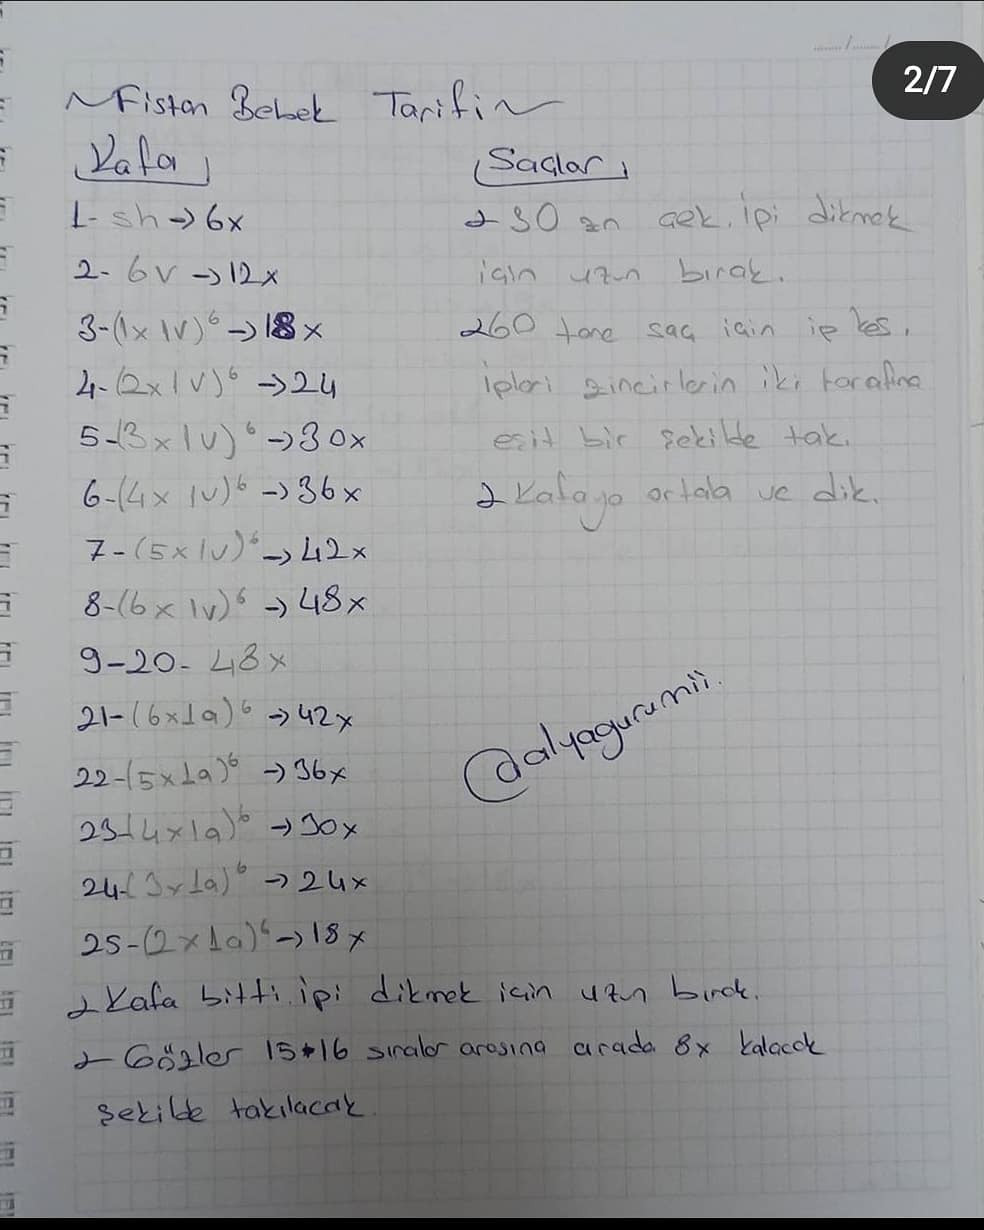 2/7
~Fistan Bebek Tarifi~
Kafa
1- sh → 6x
2- 6v → 12x
3-(1x 1v)⁶ → 18x
4-(2x 1v)⁶ → 24
5-(3x 1v)⁶ → 30x
6-(4x 1v)⁶ → 36x
7-(5x 1v)⁶ → 42x
8-(6x 1v)⁶ → 48x
9-20- 48x
21-(6x1a)⁶ → 42x
22-(5x1a)⁶ → 36x
23-(4x1a)⁶ → 30x
24-(3x1a)⁶ → 24x
25-(2x1a)⁶ → 18x
Kafa bitti. ipi dikmek için uzun bırak.
Gözler 15*16 sıralar arasına arada 8x kalacak
şekilde takılacak.
Saçlar
30 zn çek. İpi dikmek
için uzun bırak.
60 tane saç için ip kes.
İpleri zincirlerin iki tarafına
eşit bir şekilde tak.
Kafaya ortala ve dik.
@alyagurumii.